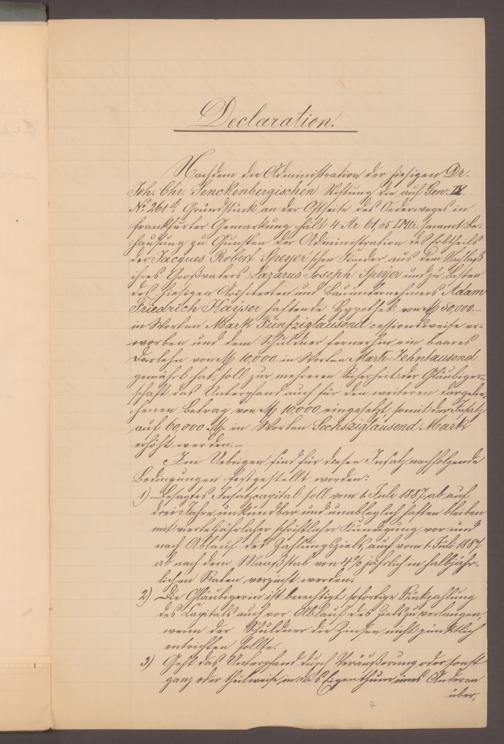 Declaration.
Nachdem die Administration der hiesigen Dr.
Joh. Chr. Senckenbergischen Stiftung die auf Gew. IX
No 261 d Grundstück an der Ostseite des Oederweges in
Frankfurter Gemarkung hält 4 Ar 61,05 Mtr. sammt Be-
hausung zu Gunsten der Administration des Erbtheils
der Jacques Robert Speyer'schen Kinder aus dem Nachlaß
ihres Großvaters Lazarus Joseph Speyer und zu Lasten
des hiesigen Architecten und Bauunternehmers Adam
Friedrich Kayser haftende Hypothek von M 50,000.–
in Worten Mark Fünfzigtausend cessionsweise er-
worben und dem Schuldner fernerhin ein baares
Darlehn von M 10,000 in Worten Mark Zehntausend
gewährt hat, soll zur mehreren Sicherheit der Gläubiger-
schaft das Unterpfand auch für den weiteren dargelie-
henen Betrag von M 10000 eingesetzt, somit der Insatz
auf 60,000 M in Worten Sechszigtausend Mark
erhöht werden.–
Im Uebrigen sind für diesen Insatz nachfolgende
Bedingungen festgestellt worden:
1) Besagtes Insatzcapital soll vom 1. Juli 1887 ab auf
drei Jahre unkündbar und unablöslich stehen bleiben
mit vierteljährlicher schriftlicher Kündigung vor und
nach Ablauf des Zahlungsziels, auch vom 1. Juli 1887
ab nach dem Maasstab von 4% jährlich in halbjähr-
lichen Raten verzinst werden.
2) Die Gläubigerin ist berechtigt sofortige Rückzahlung
des Capitals auch vor Ablauf des Ziels zu verlangen,
wenn der Schuldner die Zinsen nicht pünktlich
entrichten sollte.
3) Geht das Unterpfand durch Veräußerung oder sonst
ganz oder theilweise in das Eigenthum eines Anderen
über,
7